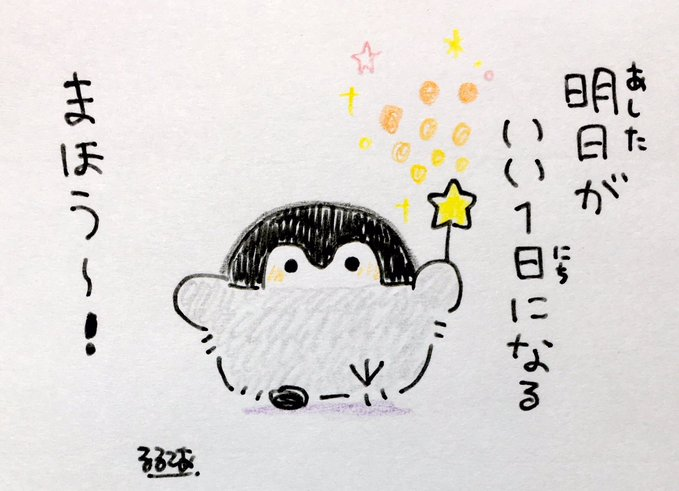 明日が
あした
いい1日になる
にち
まほう〜!
るるてあ